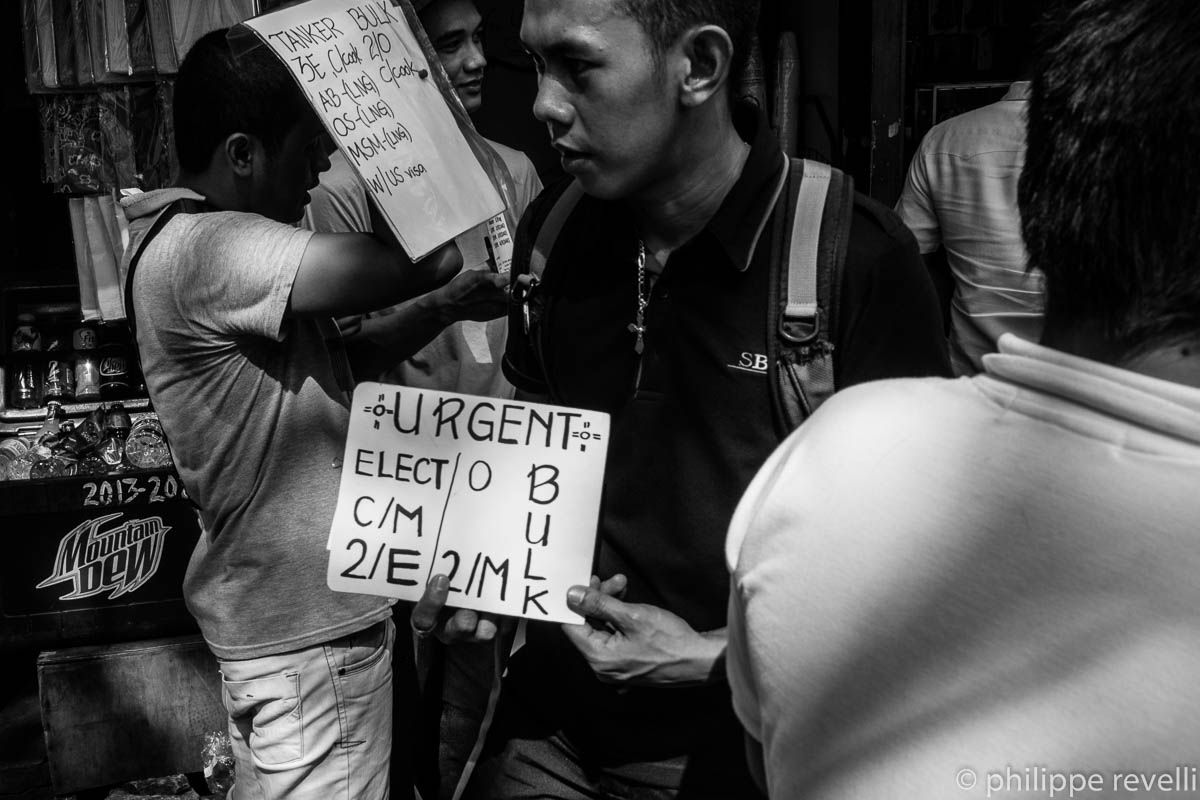 TANKER BULK
3E C/cook 2/O
AB-(LNG) C/cook
OS-(LNG)
MSM-(LNG)
W/US visa
SB
URGENT
ELECT/O
C/M
2/E 2/M
BULK
2013-20
Mountain
Dew
© philippe revelli